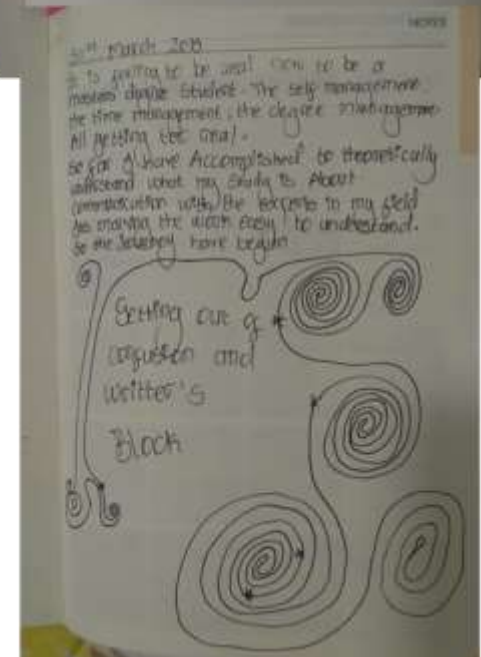 NOTES
March 2018
It is going to be real now to be a
masters degree student. The self management
the time management, the degree management
All getting too real.
So far I have Accomplished to theoretically
understand what my study is About
communication with the experts in my field
is making the work easy to understand.
So the Journey have begun
Getting out of
confusion and
writter's
Block